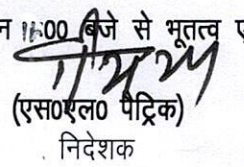 न 11:00 बजे से भूतत्व ए
(एस0एल0 पैट्रिक)
निदेशक